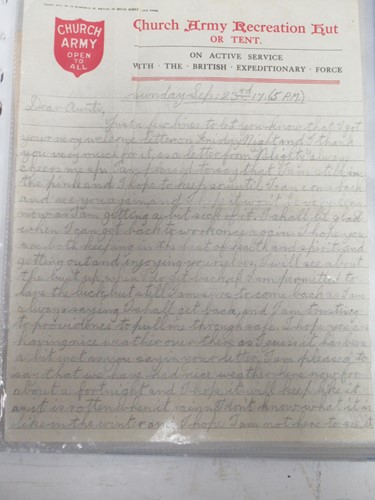 CHURCH
ARMY
OPEN
TO
ALL
Church Army Recreation Hut
OR TENT.
ON ACTIVE SERVICE
WITH · THE · BRITISH · EXPEDITIONARY · FORCE
Sunday Sep: 23rd 17 (5 P.M)
Dear Auntie,
Just a few lines to let you know that I got
your very welcome letter on Friday Night and I thank
you very much for it, as a letter from Blighty always
cheers me up. I am pleased to say that I am still in
the pink and I hope to keep so until I can come back
and see you again and I hope it won't be very long
now as I am getting a bit sick of it. I shall be glad
when I can get back to work once again. I hope you
are both keeping in the best of health and spirits and
getting out and enjoying yourselves, I will see about
the bust up when I do get back if I am permitted to
have the luck, but still I am sure to come back as I am
always saying I shall get back, and I am trusting
to providence to pull me through safe. I hope you are
having nice weather over there as I guess it has been
a bit wet as you say in your letter, I am pleased to
say that we have had nice weather here now for
about a fortnight and I hope it will keep like it
as it is rotten when it rains, I dont know what it is
like in the winter and I hope I am not here to see it